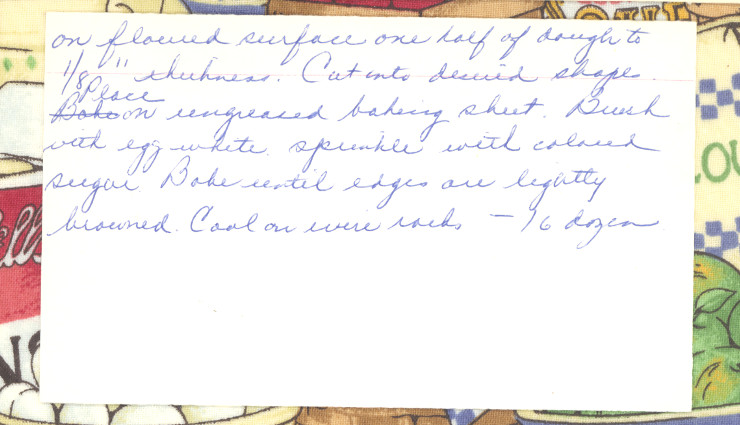 on floured surface one half of dough to
1/8" thickness. Cut into desired shapes.
Place
Bake on ungreased baking sheet. Brush
with egg white. sprinkle with colored
sugar. Bake until edges are lightly
browned. Cool on wire racks — 16 dozen